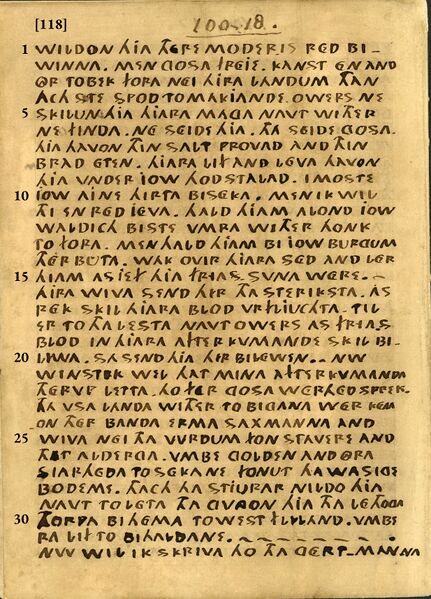 [118] 100-18.
1 WILDON HJA THERE MODERIS RED BI-
WINNA. MEN GOSA FREJE. KANST EN AND
OR TOBEK FORA NEI HJRA LANDUM THAN
ACH STE SPOD TO MAKJANDE. OWERS NE
5 SKILUN HJA HJARA MAGA NAVT WITHER
NE FINDA. NE SEIDE HJA. THA SEIDE GOSA.
HJA HAVON THIN SALT PROVAD AND THIN
BRAD ETEN. HJARA LIF AND LEVA HAVON
HJA VNDER JOW HOD STALAD. I MOSTE
10 JOW AJNE HIRTA BISEKA. MEN IK WIL
THI EN RED JEVA. HALD HJAM ALOND JOW
WALDICH BISTE VMRA WITHER HONK
TO FORA. MEN HALD HJAM BI JOW BURGUM
THER BUTA. WAK OVIR HJARA SED AND LER
15 HJAM AS JEF HJA FRJAS SVNA WERE. -
HJRA WIVA SEND HIR THA STERIKSTA. AS
REK SKIL HJARA BLOD VRFLJUCHTA. TIL
ER TO THA LESTA NAVT OWERS AS FRJAS
BLOD IN HJARA AFTERKVMANDE SKIL BI-
20 LIWA. SA SEND HJA HIR BILEWEN.. NW
WINSTIK WEL THAT MINA AFTERKVMANDA
THERVP LETTA. HO FER GOSA WERHED SPREK.
THA VSA LANDA WITHER TO BIGANA WER KEM
ON THER BANDA ERMA SAXMANNA AND
25 WIVA NEI THA VVRDUM FON STAVERE AND
THET ALDERGA. VMBE GOLDEN AND ORA
SJARHEDA TO SEKANE FONUT THA WASIGE
BODEME. THACH THA STJURAR NILDO HJA
NAVT TO LETA. THA GVNGON HJA THA LETHOGA
30 THORPA BIHEMA TO WEST FLILAND. VMBE
RA LIF TO BIHALDANE.
NW WIL IK SKRIVA HO THA GERT-MANNA